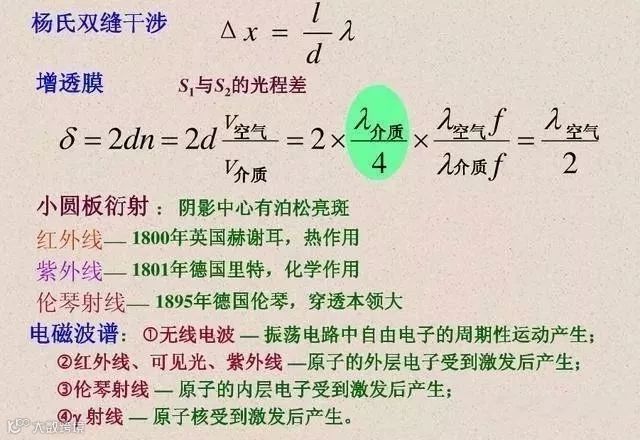 杨氏双缝干涉 Δx = l/d λ
增透膜 S₁与S₂的光程差
δ = 2dn = 2d V空气/V介质 = 2 × λ介质/4 × λ空气f/λ介质f = λ空气/2
小圆板衍射：阴影中心有泊松亮斑
红外线— 1800年英国赫谢耳，热作用
紫外线— 1801年德国里特，化学作用
伦琴射线— 1895年德国伦琴，穿透本领大
电磁波谱：①无线电波 — 振荡电路中自由电子的周期性运动产生；
②红外线、可见光、紫外线 —原子的外层电子受到激发后产生；
③伦琴射线 — 原子的内层电子受到激发后产生；
④γ 射线 — 原子核受到激发后产生。
大数跨境